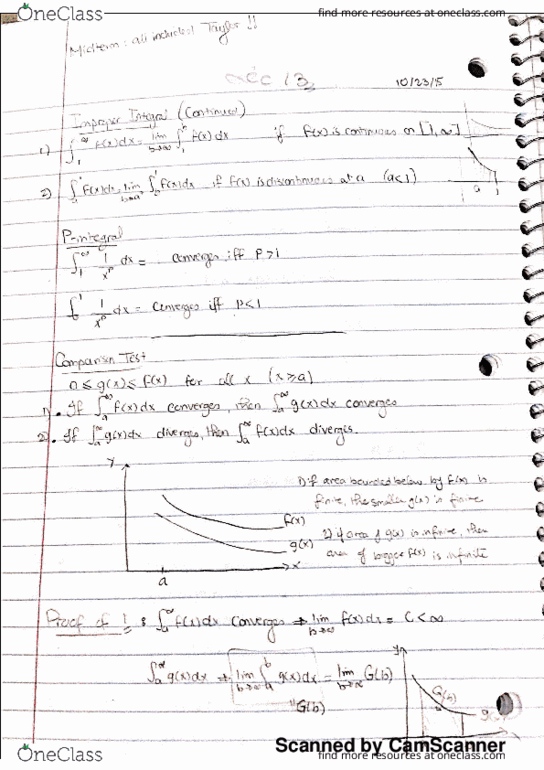 OneClass
find more resources at oneclass.com
Midterm: all included Taylor !!
Lec 13
10/23/5
Improper Integral (Continued)
1) ∫₁^∞ f(x)dx = lim b→∞ ∫₁^b f(x)dx if f(x) is continuous on [1,∞]
2) ∫ₐ¹ f(x)dx = lim ∫ f(x)dx if f(x) is discontinuous at a (a<1)
a 1
P-integral
∫₁^∞ 1/x^p dx = converges iff P>1
∫₀¹ 1/x^p dx = converges iff P<1
Comparison Test
0 ≤ g(x) ≤ f(x) for all x (x≥a)
1) • If ∫ₐ^∞ f(x)dx converges, then ∫ₐ^∞ g(x)dx converges
2) • If ∫ₐ^∞ g(x)dx diverges, then ∫ₐ^∞ f(x)dx diverges.
y
1) if area bounded below by f(x) is
finite, the smaller g(x) is finite
f(x)
g(x)
2) if area of g(x) is infinite, then
area of bigger f(x) is infinite
x
a
Proof of 1 : ∫ₐ^∞ f(x)dx converges ⇒ lim b→∞ f(x)dx = C < ∞
∫ₐ^∞ g(x)dx ⇒ lim b→∞ ∫ₐ^b g(x)dx = lim b→∞ G(b)
"G(b)
y
G(b)
Scanned by CamScanner
OneClass
find more resources at oneclass.com